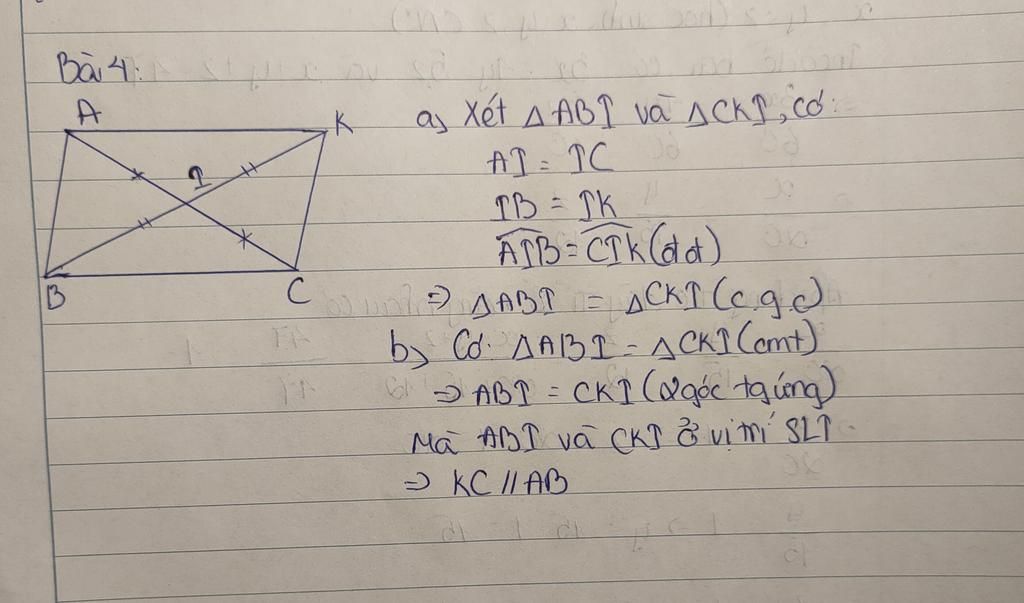 Bài 4:
A
K
I
B
C
a, Xét △ABI và △CKI, có:
AI = IC
IB = IK
AIB = CIK (đđ)
⇒ △ABI = △CKI (c.g.c)
b, Có: △ABI = △CKI (cmt)
⇒ ABI = CKI (2 góc tg ứng)
Mà ABI và CKI ở vị trí SLT
⇒ KC // AB